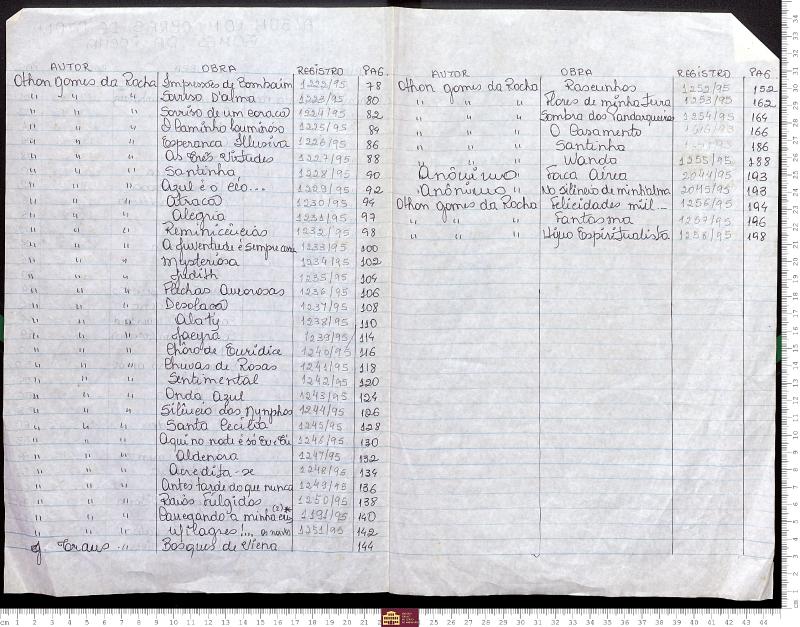 AUTOR OBRA REGISTRO PAG
Othon gomes da Rocha Impressões de Bombaim 1225/95 78
" " " Sorriso D'alma 1223/95 80
" " " Sorriso de um coração 1224/95 82
" " " O Caminho Luminoso 1225/95 84
" " " Esperança Illusiva 1226/95 86
" " " As Três Virtudes 1227/95 88
" " " Santinha 1228/95 90
" " " Azul é o céo... 1229/95 92
" " " Atração 1230/95 94
" " " Alegria 1231/95 97
" " " Reminicências 1232/95 98
" " " A juventude é sempre 1233/95 100
" " " Mysteriosa 1234/95 102
" " " Judith 1235/95 104
" " " Fléchas Amorosas 1236/95 106
" " " Desolação 1237/95 108
" " " Alaty 1238/95 110
" " " Jacyra 1239/95 114
" " " Chôro de Eurídice 1240/95 116
" " " Chuvas de Rosas 1241/95 118
" " " Sentimental 1242/95 120
" " " Onda Azul 1243/95 124
" " " Silêncio das Nymphas 1244/95 126
" " " Santa Cecilia 1245/95 128
" " " Aqui no norte é só 1246/95 130
" " " Aldenora 1247/95 132
" " " Acredita-se 1248/95 134
" " " Antes tarde do que nunca 1249/95 136
" " " Raios Fulgidos 1250/95 138
" " " Carregando a minha cruz (2)* 1191/95 140
" " " Milagres!... 1251/95 142
J Traus " Bosques de Viena 144
AUTOR OBRA REGISTRO PAG
Othon gomes da Rocha 1252/95 152
" " " Flores de minha terra 1253/95 162
" " " Sombra dos Tandarqueros 1254/95 164
" " " O Casamento 166
" " " Santinha 186
" " " Wanda 1255/95 188
Anônimo Farca Airea 2044/95 193
Anônimo No silêncio de minhalma 2045/95 193
Othon gomes da Rocha Felicidades mil... 1256/95 194
" " " Fantasma 1257/95 196
" " " Hyno Espiritualista 1258/95 198